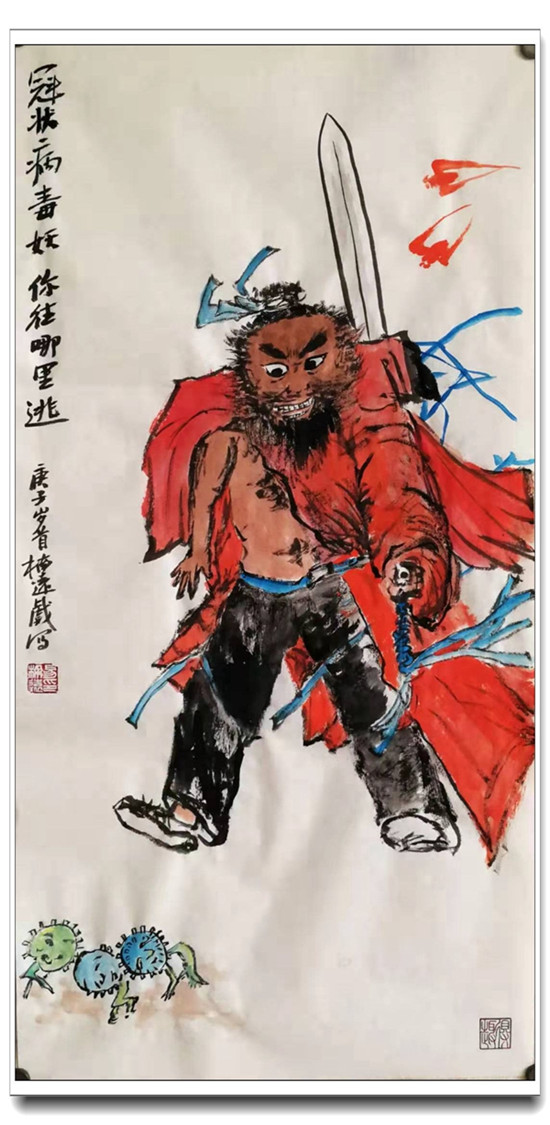 冠状病毒妖 你往哪里逃
庚子岁首 极远戏写